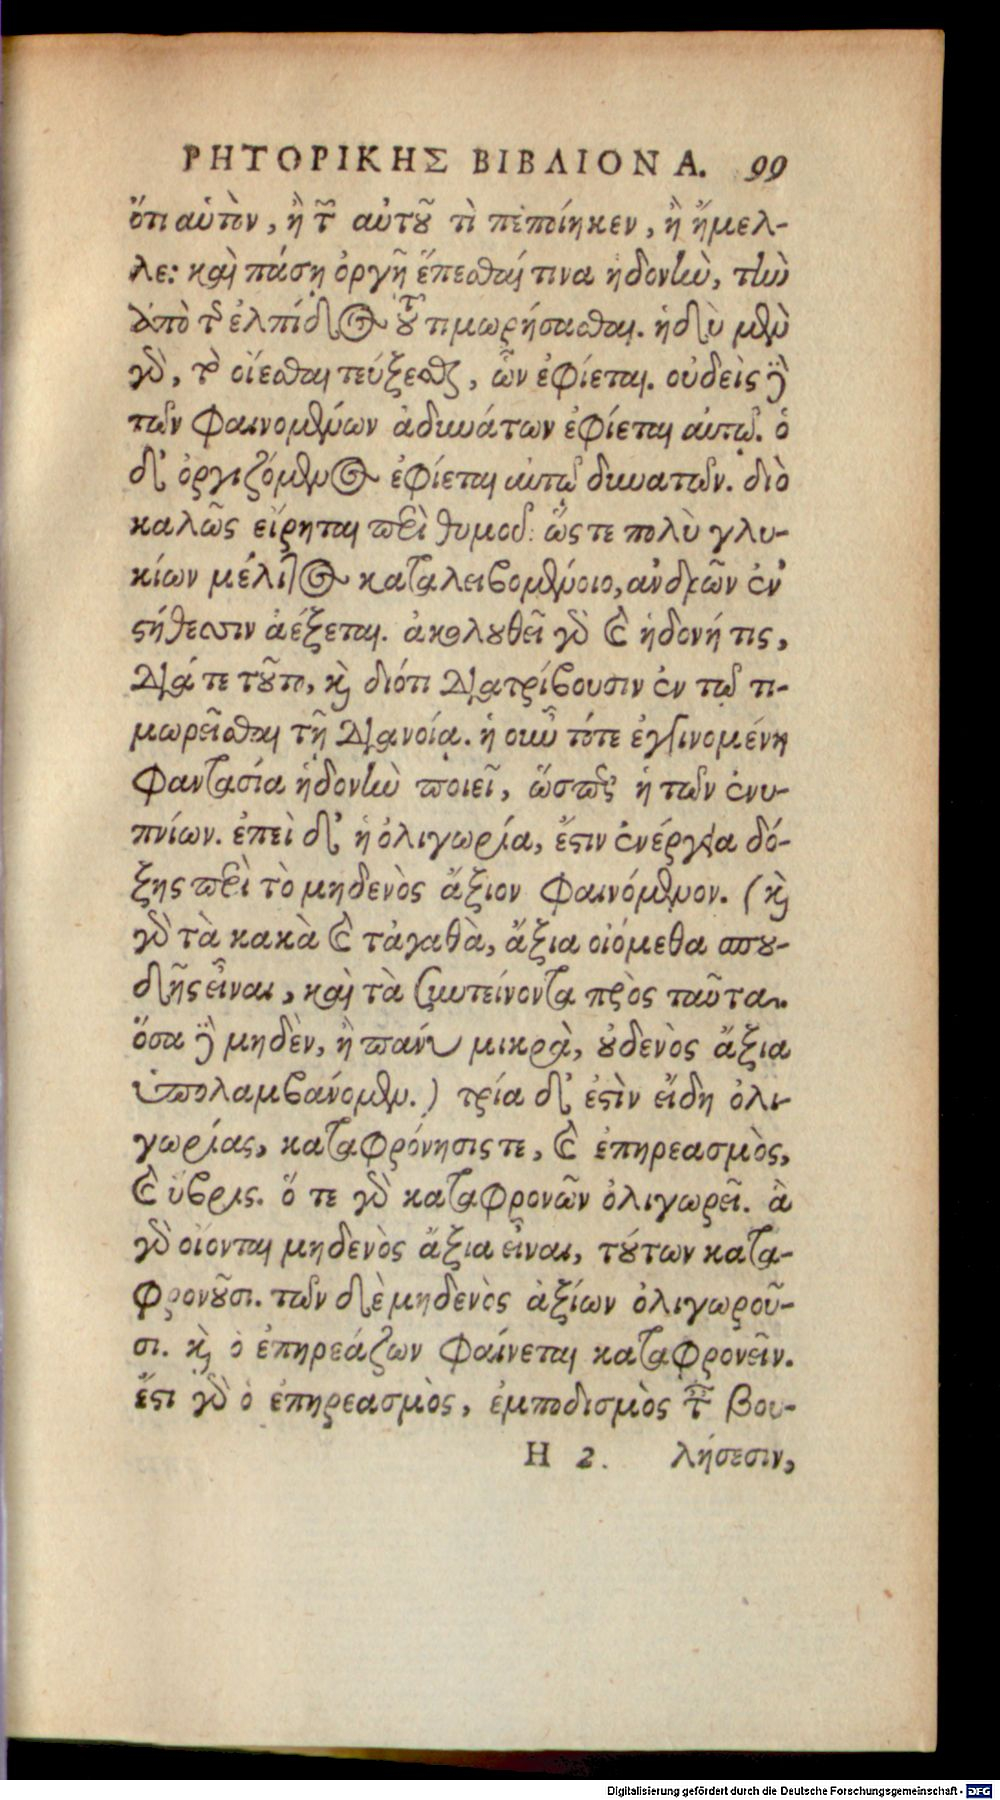 ΡΗΤΟΡΙΚΗΣ ΒΙΒΛΙΟΝ Α. 99
ὅτι αὑτὸν, ἢ τῶν αὑτοῦ τὶ πεποίηκεν, ἢ ἤμελ-
λε: καὶ πάσῃ ὀργῇ ἕπεσθαί τινα ἡδονὴν, τὴν
ἀπὸ τῆς ἐλπίδος τοῦ τιμωρήσασθαι. ἡδὺ μὲν
γὰρ, τὸ οἴεσθαι τεύξεσθαι, ὧν ἐφίεται. οὐδεὶς δὲ
τῶν φαινομένων ἀδυνάτων ἐφίεται αὑτῷ. ὁ
δὲ ὀργιζόμενος ἐφίεται αὑτῷ δυνατῶν. διὸ
καλῶς εἴρηται περὶ θυμοῦ: ὥς τε πολὺ γλυ-
κίων μέλιτος καταλειβομένοιο, ἀνδρῶν ἐν
στήθεσσιν ἀέξεται. ἀκολουθεῖ γὰρ καὶ ἡδονή τις,
διά τε τοῦτο, καὶ διότι διατρίβουσιν ἐν τῷ τι-
μωρεῖσθαι τῇ διανοίᾳ. ἡ οὖν τότε ἐγγινομένη
φαντασία ἡδονὴν ποιεῖ, ὥσπερ ἡ τῶν ἐνυ-
πνίων. ἐπεὶ δὲ ἡ ὀλιγωρία, ἔστιν ἐνέργεια δό-
ξης περὶ τὸ μηδενὸς ἄξιον φαινόμενον. (καὶ
γὰρ τὰ κακὰ καὶ τἀγαθὰ, ἄξια οἰόμεθα σπου-
δῆς εἶναι, καὶ τὰ συντείνοντα πρὸς ταῦτα.
ὅσα δὲ μηδὲν, ἢ πάνυ μικρὰ, οὐδενὸς ἄξια
ὑπολαμβάνομεν.) τρία δὲ ἐστὶν εἴδη ὀλι-
γωρίας, καταφρόνησις τε, καὶ ἐπηρεασμὸς,
καὶ ὕβρις. ὅ τε γὰρ καταφρονῶν ὀλιγωρεῖ. ἃ
γὰρ οἴονται μηδενὸς ἄξια εἶναι, τούτων κατα-
φρονοῦσι. τῶν δὲ μηδενὸς ἀξίων ὀλιγωροῦ-
σι. καὶ ὁ ἐπηρεάζων φαίνεται καταφρονεῖν.
ἔστι γὰρ ὁ ἐπηρεασμὸς, ἐμποδισμὸς ταῖς βου-
Η 2. λήσεσιν,
Digitalisierung gefördert durch die Deutsche Forschungsgemeinschaft - DFG